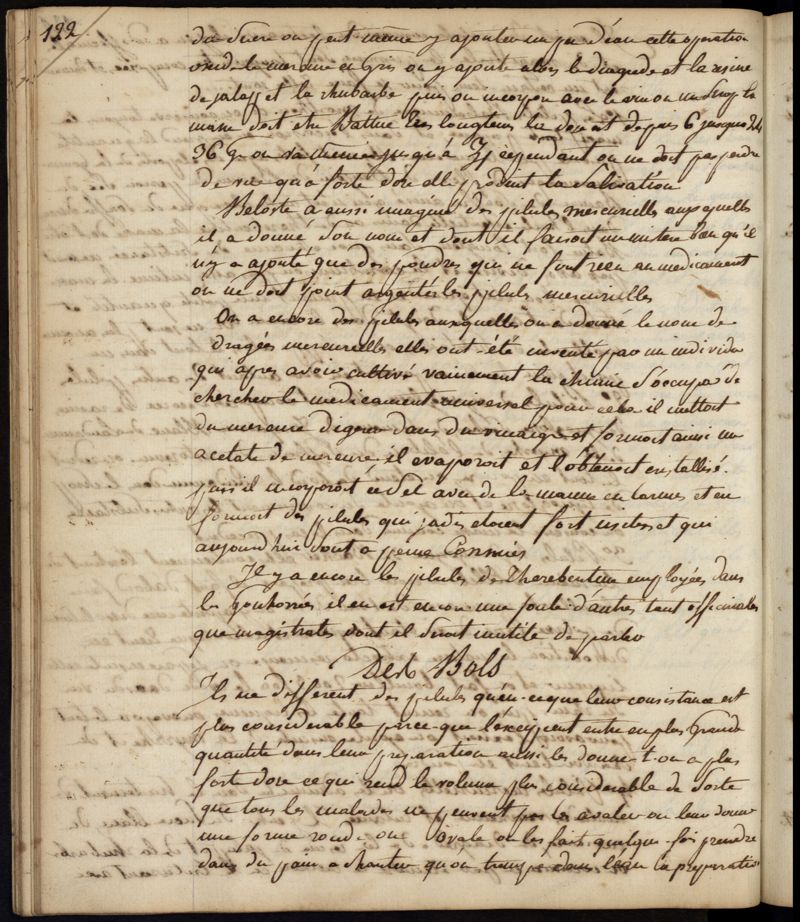 122
du sucre on peut même y ajouter un peu d'eau cette operation
oxide le mercure en gris on y ajoute alors le diagrede et la resine
de jalap et la rhubarbe puis on incorpore avec le vin ou un sirop la
masse doit etre Battue tres longtems la dose est depuis 6 jusques 24
36 gr on va meme jusqu'à cependant on ne doit pas perdre
de vue qu'à forte dose elle produit la Salivation
Beloste a aussi imaginé des pilules mercurielles auxquelles
il a donné son nom et dont il faisoit un mistere bien qu'il
n'y a ajouté que des poudres qui ne font rien au medicament
on ne doit point argenter les pilules mercurielles
On a encore des pilules auxquelles on a donné le nom de
dragées mercurielles elles ont été inventé par un individu
qui apres avoir cultivé vainement la chimie s'occupa de
chercher le medicament universel pour cela il mettoit
du mercure digerer dans du vinaigre et formoit ainsi un
acetate de mercure, il evaporoit et l'obtenoit cristallisé.
puis il incorporoit ce sel avec de la manne en larmes et en
formoit des pilules qui jadis etoient fort usitees et qui
aujourdhui sont a peine Connues
Il y a encore les pilules de Therebentine employées dans
les Gonhorrées il en est encore une foule d'autres tant officinalles
que magistrales dont il seroit inutile de parler
Des Bols
Ils ne different des pilules qu'en ce que leur consistance est
plus considerable parce que l'excipient entre en plus grande
quantité dans leur preparation aussi les donne-t-on a plus
forte dose ce qui rend le volume plus considerable de sorte
que tous les malades ne peuvent pas les avaler on leur donne
une forme ronde ou Ovale on les fait quelque fois prendre
dans du pain a chanter qu'on trempe dans l'eau la preparation